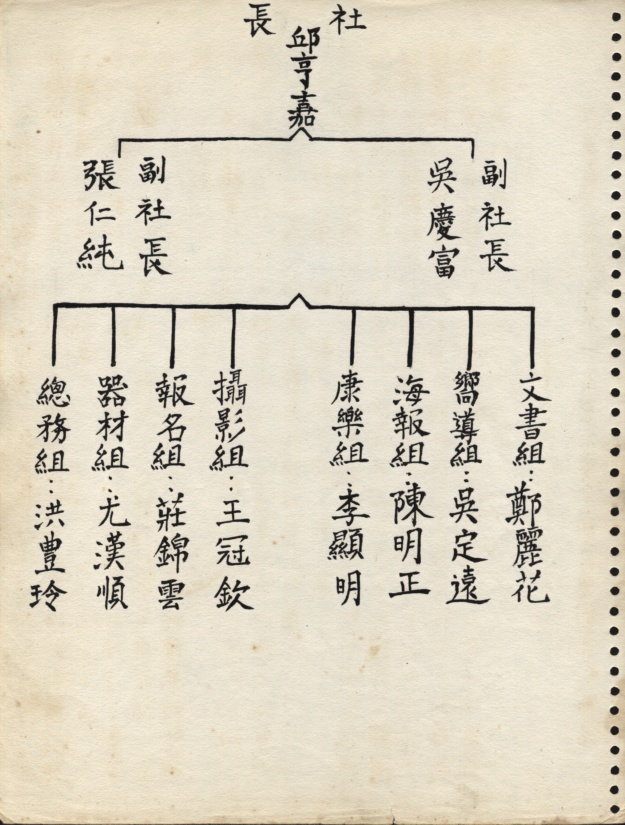 社長
邱亨嘉
副社長
吳慶富
副社長
張仁純
文書組：鄭麗花
嚮導組：吳定遠
海報組：陳明正
康樂組：李顯明
攝影組：王冠欽
報名組：莊錦雲
器材組：尤漢順
總務組：洪豊玲